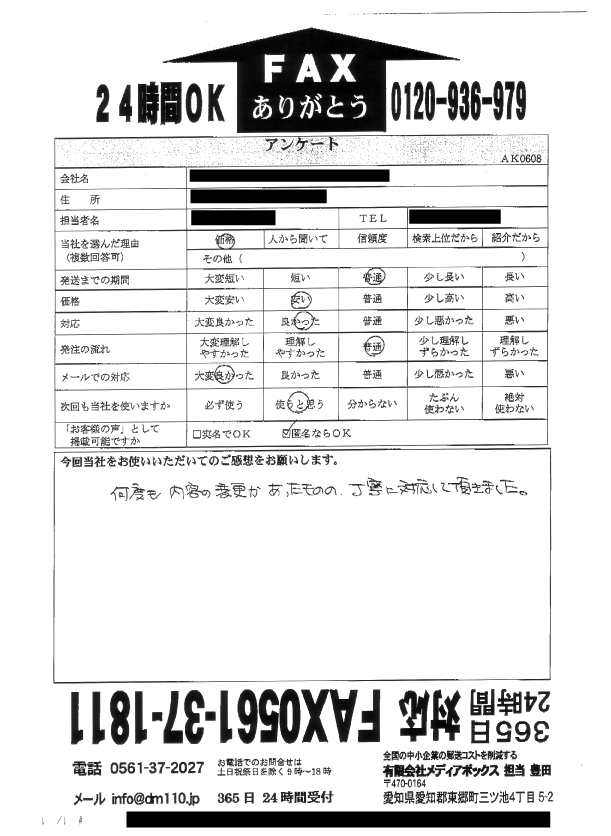 FAX
ありがとう
24時間OK
0120-936-979
アンケート
AK0608
会社名
住 所
担当者名 TEL
当社を選んだ理由 (複数回答可) 価格 人から聞いて 信頼度 検索上位だから 紹介だから
その他 ( )
発送までの期間 大変短い 短い 普通 少し長い 長い
価格 大変安い 安い 普通 少し高い 高い
対応 大変良かった 良かった 普通 少し悪かった 悪い
発注の流れ 大変理解しやすかった 理解しやすかった 普通 少し理解しずらかった 理解しずらかった
メールでの対応 大変良かった 良かった 普通 少し悪かった 悪い
次回も当社を使いますか 必ず使う 使うと思う 分からない たぶん使わない 絶対使わない
「お客様の声」として掲載可能ですか □実名でOK ☑匿名ならOK
今回当社をお使いいただいてのご感想をお願いします。
何度も内容の変更があったものの、丁寧に対応して頂きました。
365日
24時間 対応 FAX0561-37-1811
電話 0561-37-2027
お電話でのお問合せは
土日祝祭日を除く9時~18時
メール info@dm110.jp 365日 24時間受付
全国の中小企業の郵送コストを削減する
有限会社メディアボックス 担当 豊田
〒470-0164
愛知県愛知郡東郷町三ツ池4丁目5-2